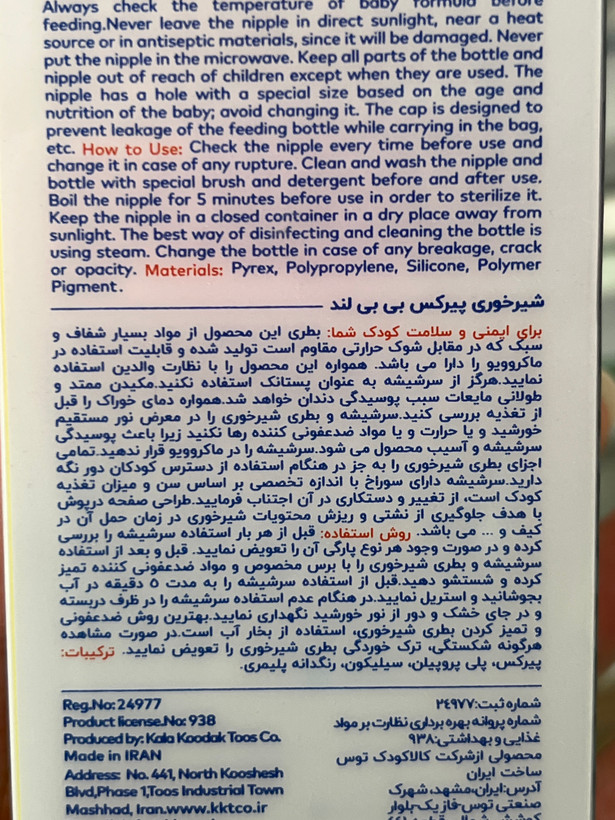 Always check the temperature of baby formula before
feeding.Never leave the nipple in direct sunlight, near a heat
source or in antiseptic materials, since it will be damaged. Never
put the nipple in the microwave. Keep all parts of the bottle and
nipple out of reach of children except when they are used. The
nipple has a hole with a special size based on the age and
nutrition of the baby; avoid changing it. The cap is designed to
prevent leakage of the feeding bottle while carrying in the bag,
etc. How to Use: Check the nipple every time before use and
change it in case of any rupture. Clean and wash the nipple and
bottle with special brush and detergent before and after use.
Boil the nipple for 5 minutes before use in order to sterilize it.
Keep the nipple in a closed container in a dry place away from
sunlight. The best way of disinfecting and cleaning the bottle is
using steam. Change the bottle in case of any breakage, crack
or opacity. Materials: Pyrex, Polypropylene, Silicone, Polymer
Pigment.
شیرخوری پیرکس بی بی لند
برای ایمنی و سلامت کودک شما: بطری این محصول از مواد بسیار شفاف و
سبک که در مقابل شوک حرارتی مقاوم است تولید شده و قابلیت استفاده در
ماکروویو را دارا می باشد. همواره این محصول را با نظارت والدین استفاده
نمایید.هرگز از سرشیشه به عنوان پستانک استفاده نکنید.مکیدن ممتد و
طولانی مایعات سبب پوسیدگی دندان خواهد شد.همواره دمای خوراک را قبل
از تغذیه بررسی کنید.سرشیشه و بطری شیرخوری را در معرض نور مستقیم
خورشید و یا حرارت و یا مواد ضدعفونی کننده رها نکنید زیرا باعث پوسیدگی
سرشیشه و آسیب محصول می شود.سرشیشه را در ماکروویو قرار ندهید.تمامی
اجزای بطری شیرخوری را به جز در هنگام استفاده از دسترس کودکان دور نگه
دارید.سرشیشه دارای سوراخ با اندازه تخصصی بر اساس سن و میزان تغذیه
کودک است، از تغییر و دستکاری در آن اجتناب فرمایید.طراحی صفحه درپوش
با هدف جلوگیری از نشتی و ریزش محتویات شیرخوری در زمان حمل آن در
کیف و ... می باشد. روش استفاده: قبل از هر بار استفاده سرشیشه را بررسی
کرده و در صورت وجود هر نوع پارگی آن را تعویض نمایید. قبل و بعد از استفاده
سرشیشه و بطری شیرخوری را با برس مخصوص و مواد ضدعفونی کننده تمیز
کرده و شستشو دهید.قبل از استفاده سرشیشه را به مدت ۵ دقیقه در آب
بجوشانید و استریل نمایید.در هنگام عدم استفاده سرشیشه را در ظرف دربسته
و در جای خشک و دور از نور خورشید نگهداری نمایید.بهترین روش ضدعفونی
و تمیز کردن بطری شیرخوری، استفاده از بخار آب است.در صورت مشاهده
هرگونه شکستگی، ترک خوردگی بطری شیرخوری را تعویض نمایید. ترکیبات:
پیرکس، پلی پروپیلن، سیلیکون، رنگدانه پلیمری.
Reg.No: 24977
Product license.No: 938
Produced by: Kala Koodak Toos Co.
Made in IRAN
Address: No. 441, North Kooshesh
Blvd,Phase 1,Toos Industrial Town
Mashhad, Iran.www.kktco.ir
شماره ثبت:۲۴۹۷۷
شماره پروانه بهره برداری نظارت بر مواد
غذایی و بهداشتی:۹۳۸
محصولی ازشرکت کالاکودک توس
ساخت ایران
آدرس:ایران،مشهد،شهرک
صنعتی توس-فاز یک-بلوار